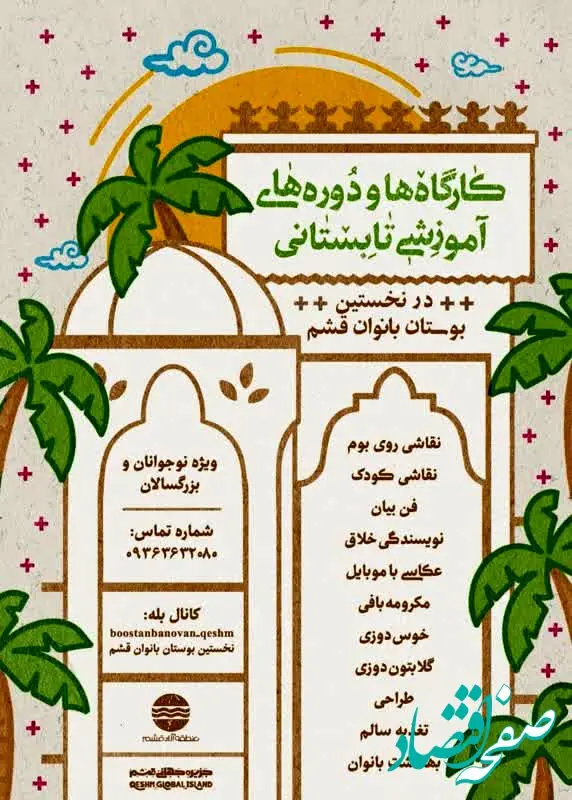 کارگاه‌ها و دُوره‌های
آموزشی تابستانی
در نخستین
بوستان بانوان قشم
نقاشی روی بوم
نقاشی کودک
فن بیان
نویسندگی خلاق
عکاسی با موبایل
مکرومه بافی
خوس دوزی
گلابتون دوزی
طراحی
تغذیه سالم
بانوان
ویژه نوجوانان و
بزرگسالان
شماره تماس:
۰۹۳۶۳۶۳۲۰۸۰
کانال بله:
boostanbanovan_qeshm
نخستین بوستان بانوان قشم
منطقه آزاد قشم
جزیره جهانی قشم
QESHM GLOBAL ISLAND
صفحه اقتصاد